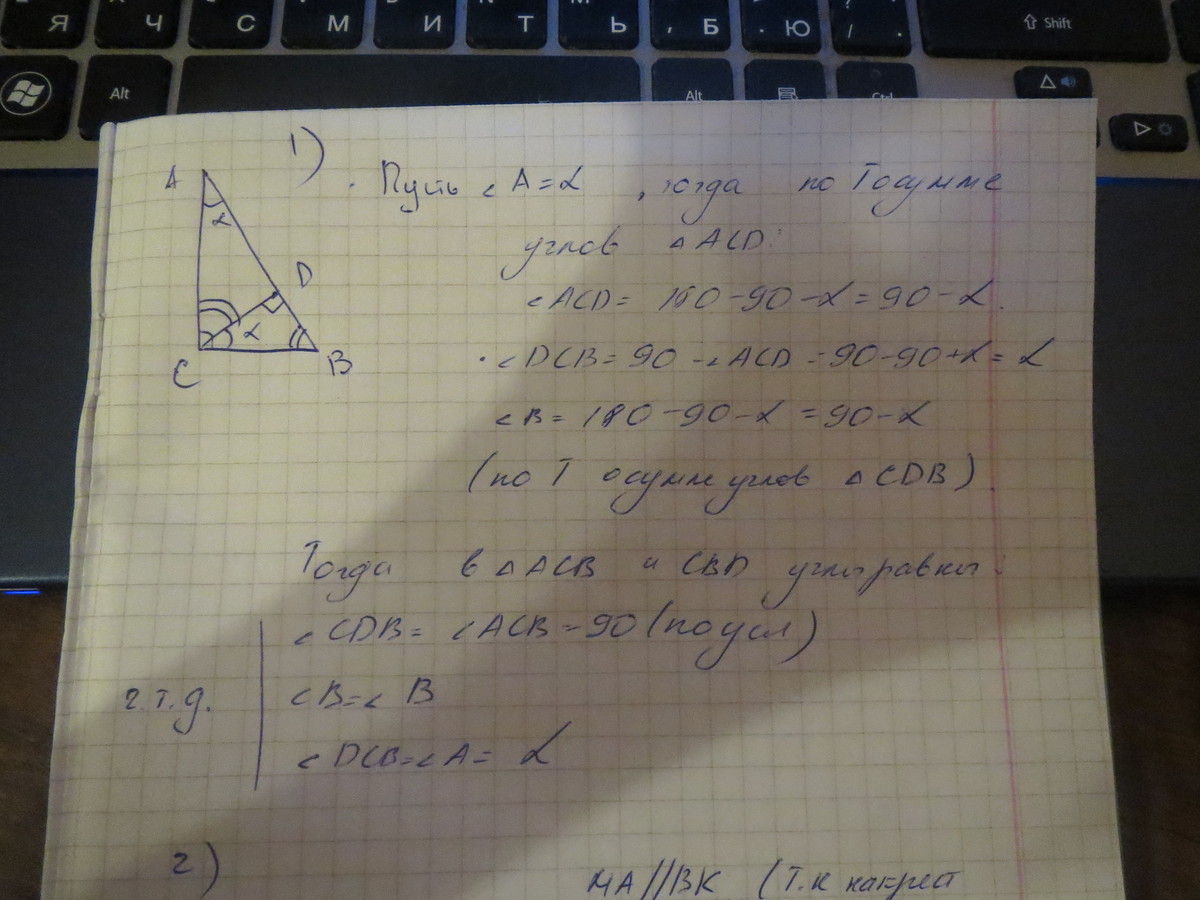 Я Ч С М И Т Ь , Б . Ю / . Shift
Alt Alt Ctrl
1)
A
α
D
α
C
B
Пусть ∠A = α , тогда по Т о сумме
углов △ACD:
∠ACD = 180 - 90 - α = 90 - α.
· ∠DCB = 90 - ∠ACD = 90 - 90 + α = α
∠B = 180 - 90 - α = 90 - α
(по Т о сумме углов △CDB)
Тогда в △ACB и CBD углы равны:
∠CDB = ∠ACB = 90 (по усл)
ч.т.д.
∠B = ∠B
∠DCB = ∠A = α
2)
MA//BK (т.к накрест